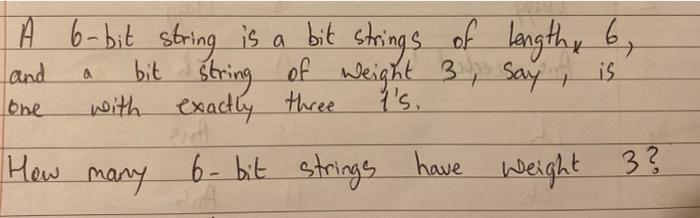 A 6-bit string is a bit strings of length 6,
and a bit string of weight 3, say, is
one with exactly three 1's.
How many 6-bit strings have weight 3?